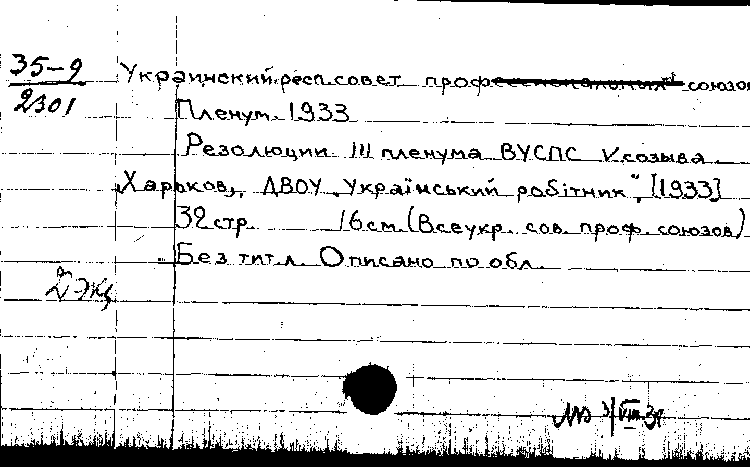 35-9
2301
Украинский респ. совет проф~~ессиональных~~ союзов
Пленум. 1933
Резолюции III пленума ВУСПС V созыва.
Харьков, ДВОУ „Український робітник“, [1933]
32 стр. 16 см. (Всеукр. сов. проф. союзов)
Без тит. л. Описано по обл.
2 экз
3/VIII